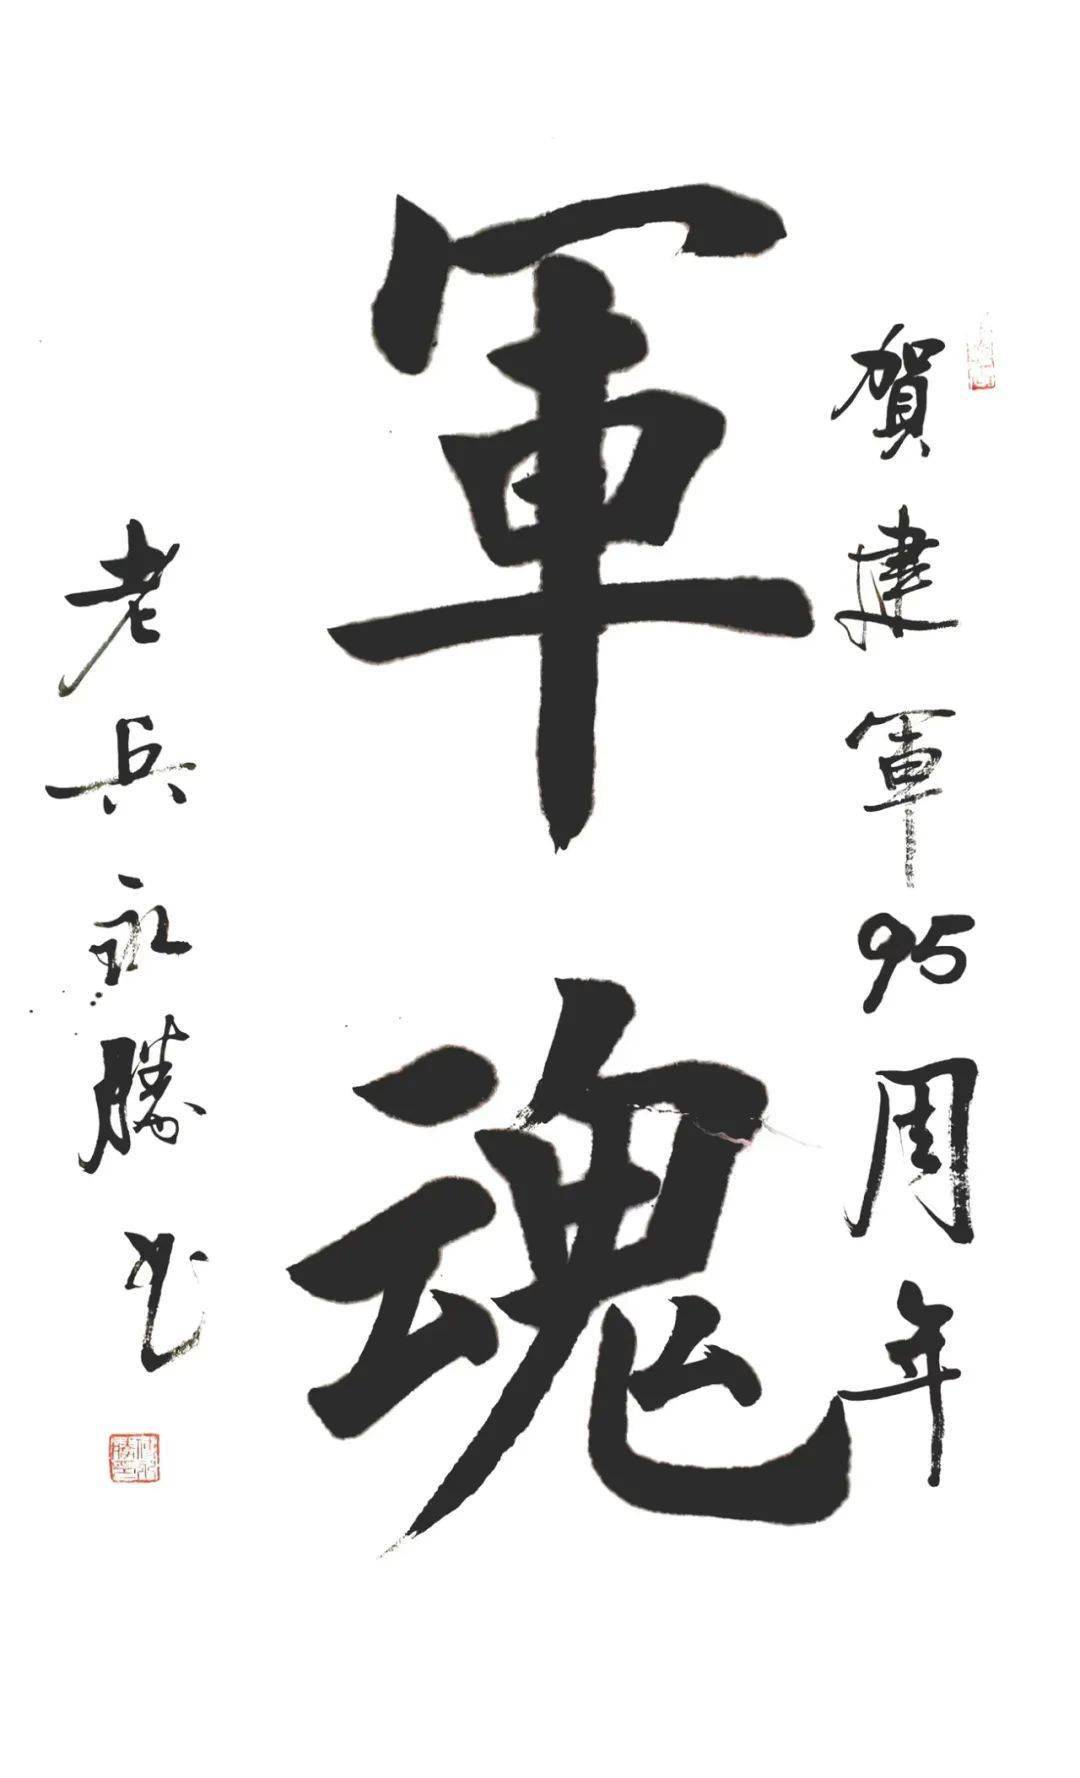 賀建軍95周年
軍魂
老兵永勝书